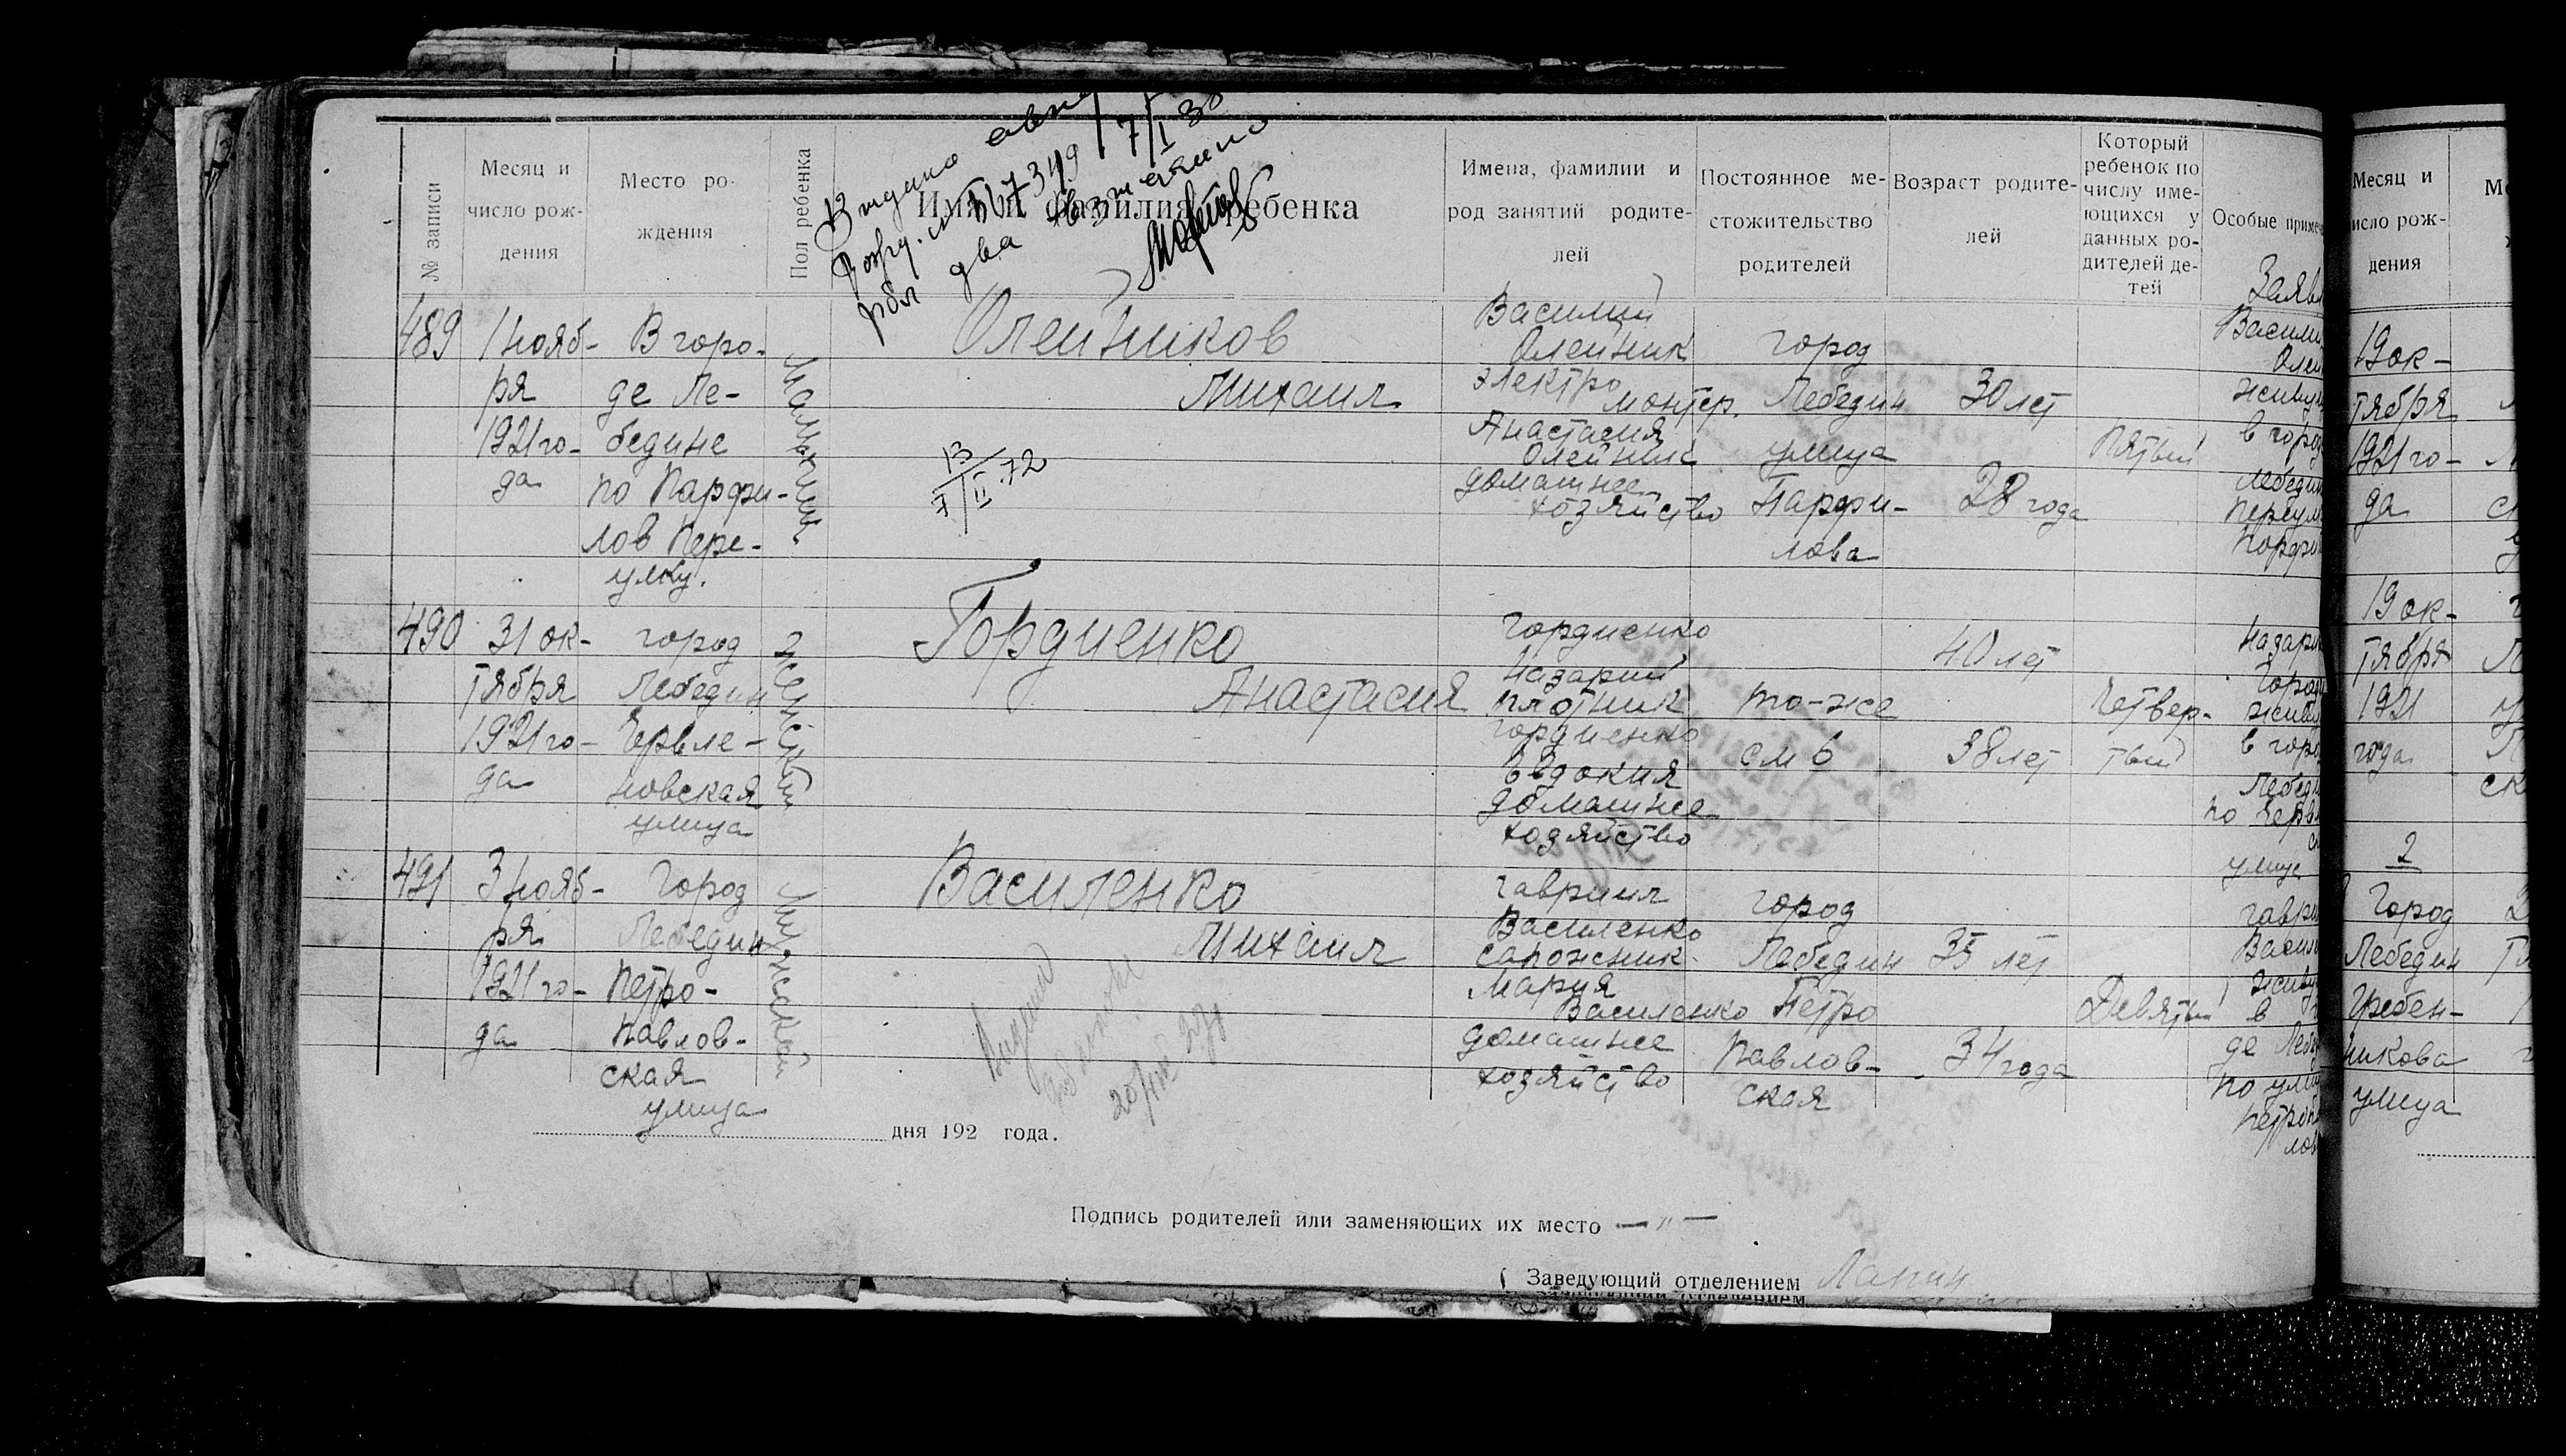 № записи
Месяц и
число рож-
дения
Место ро-
ждения
Пол ребенка
Имя и фамилия ребенка
Имена, фамилии и
род занятий родите-
лей
Постоянное ме-
стожительство
родителей
Возраст родите-
лей
Который
ребенок по
числу име-
ющихся у
данных ро-
дителей де-
тей
Особые примеч
7/I 30
два
489
1 нояб-
ря
1921 го-
да
В горо-
де Ле-
бедине
по Парфи-
лов пере-
улку.
Мальчик
Олейников
Михаил
13
II 72
Василий
Олейник
электро
монтер.
Анастасия
Олейник
домашнее
хозяйство
город
Лебедин
улица
Парфи-
лова
30 лет
28 года
пятый
Заяв
Васили
Олей
живу
в горо
Лебедин
переул
Парфи
490
31 ок-
тября
1921 го-
да
город
Лебедин
Червле-
новская
улица
женский
Гордиенко
Анастасия
Гордиенко
Назарий
плотник
Гордиенко
Евдокия
домашнее
хозяйство
то-же
см 6
40 лет
38 лет
Четвер-
тый
Назари
Горди
живу
в горо
Лебеди
по Черв
улице
491
3 нояб-
ря
1921 го-
да
Город
Лебедин
Петро-
павлов-
ская
улица
Мужской
Василенко
Михаил
Гавриил
Василенко
сапожник
Мария
Василенко
домашнее
хозяйство
город
Лебедин
Петро
павлов-
ская
35 лет
34 года
Девятый
Гаври
Васил
живу
в г
де Лебе
по ули
Петропа
лов
дня 192 года.
Подпись родителей или заменяющих их место — " —
Заведующий отделением Лапин
Месяц и
исло рож-
дения
19 ок-
тября
1921 го-
да
19 ок-
тября
1921
года
2
Город
Лебедин
Гребен-
никова
улица